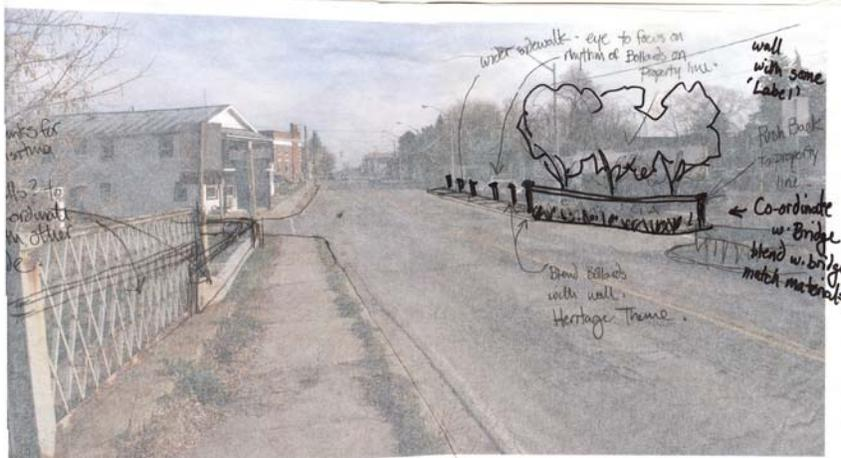 wider sidewalk - eye to focus on
rhythm of Bollards on
Property line.
wall
with some
"Label"
Push Back
to property
line.
← Co-ordinate
w. Bridge
blend w. bridge
match materials
Blend Bollards
with wall.
Heritage Theme.
for
to
other